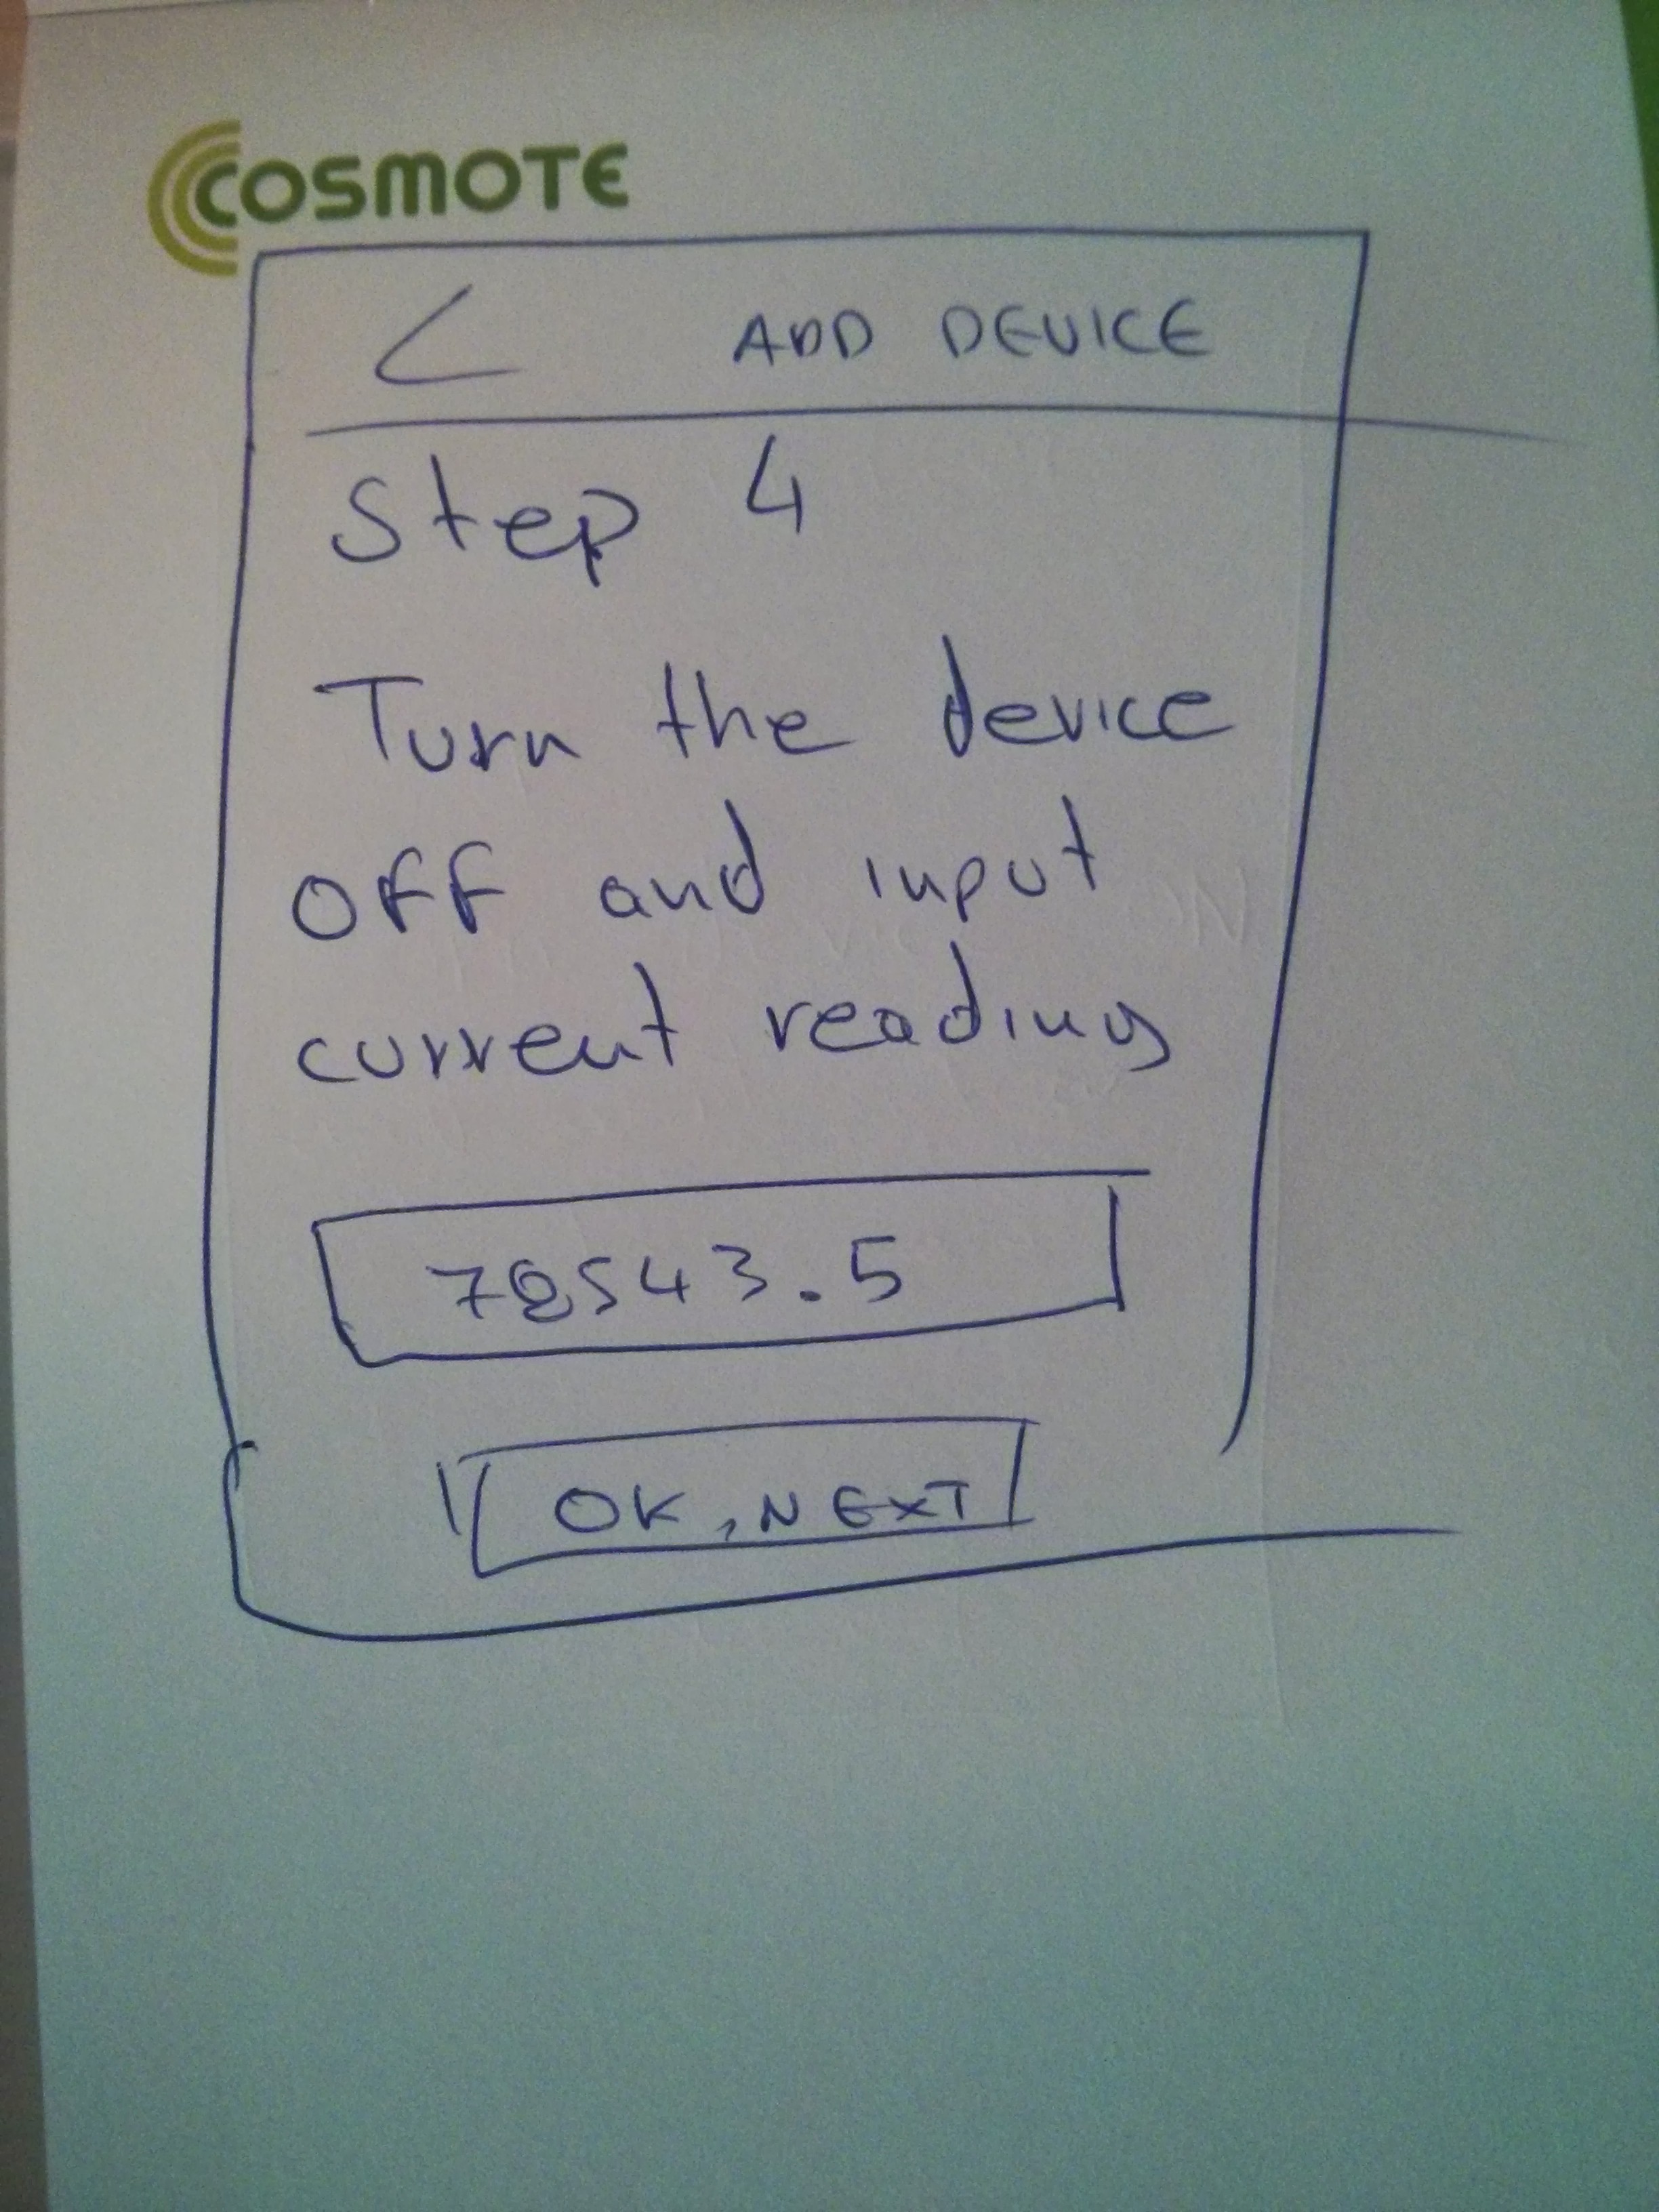 COSMOTE
< ADD DEVICE
Step 4
Turn the device
off and input
current reading
78543.5
OK, NEXT